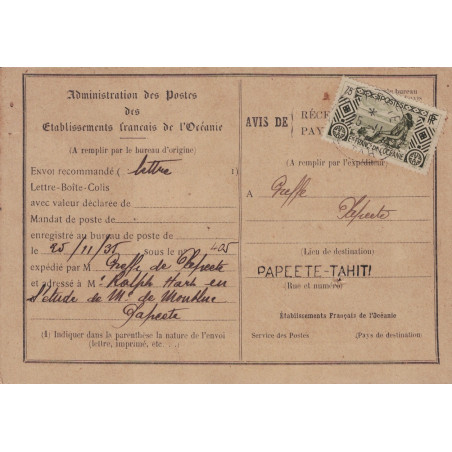 Administration des Postes
des
Etablissements français de l'Océanie
(A remplir par le bureau d'origine)
Envoi recommandé ( lettre 1)
Lettre-Boîte-Colis
avec valeur déclarée de
Mandat de poste de
enregistré au bureau de poste de
le 25/11/35 sous le n° 405
expédié par M Greffe de Papeete
et adressé à M. Ralph Hart en
l'étude de Me de Montluc
Papeete
(1) Indiquer dans la parenthèse la nature de l'envoi
(lettre, imprimé, etc. ...)
bureau
AVIS DE RÉCE
PAY
75
POSTES
ETS FRANÇ. DE L'OCÉANIE
(A remplir par l'expéditeur)
A Greffe
Papeete
(Lieu de destination)
PAPEETE-TAHITI
(Rue et numéro)
Établissements Français de l'Océanie
Service des Postes (Pays de destination)